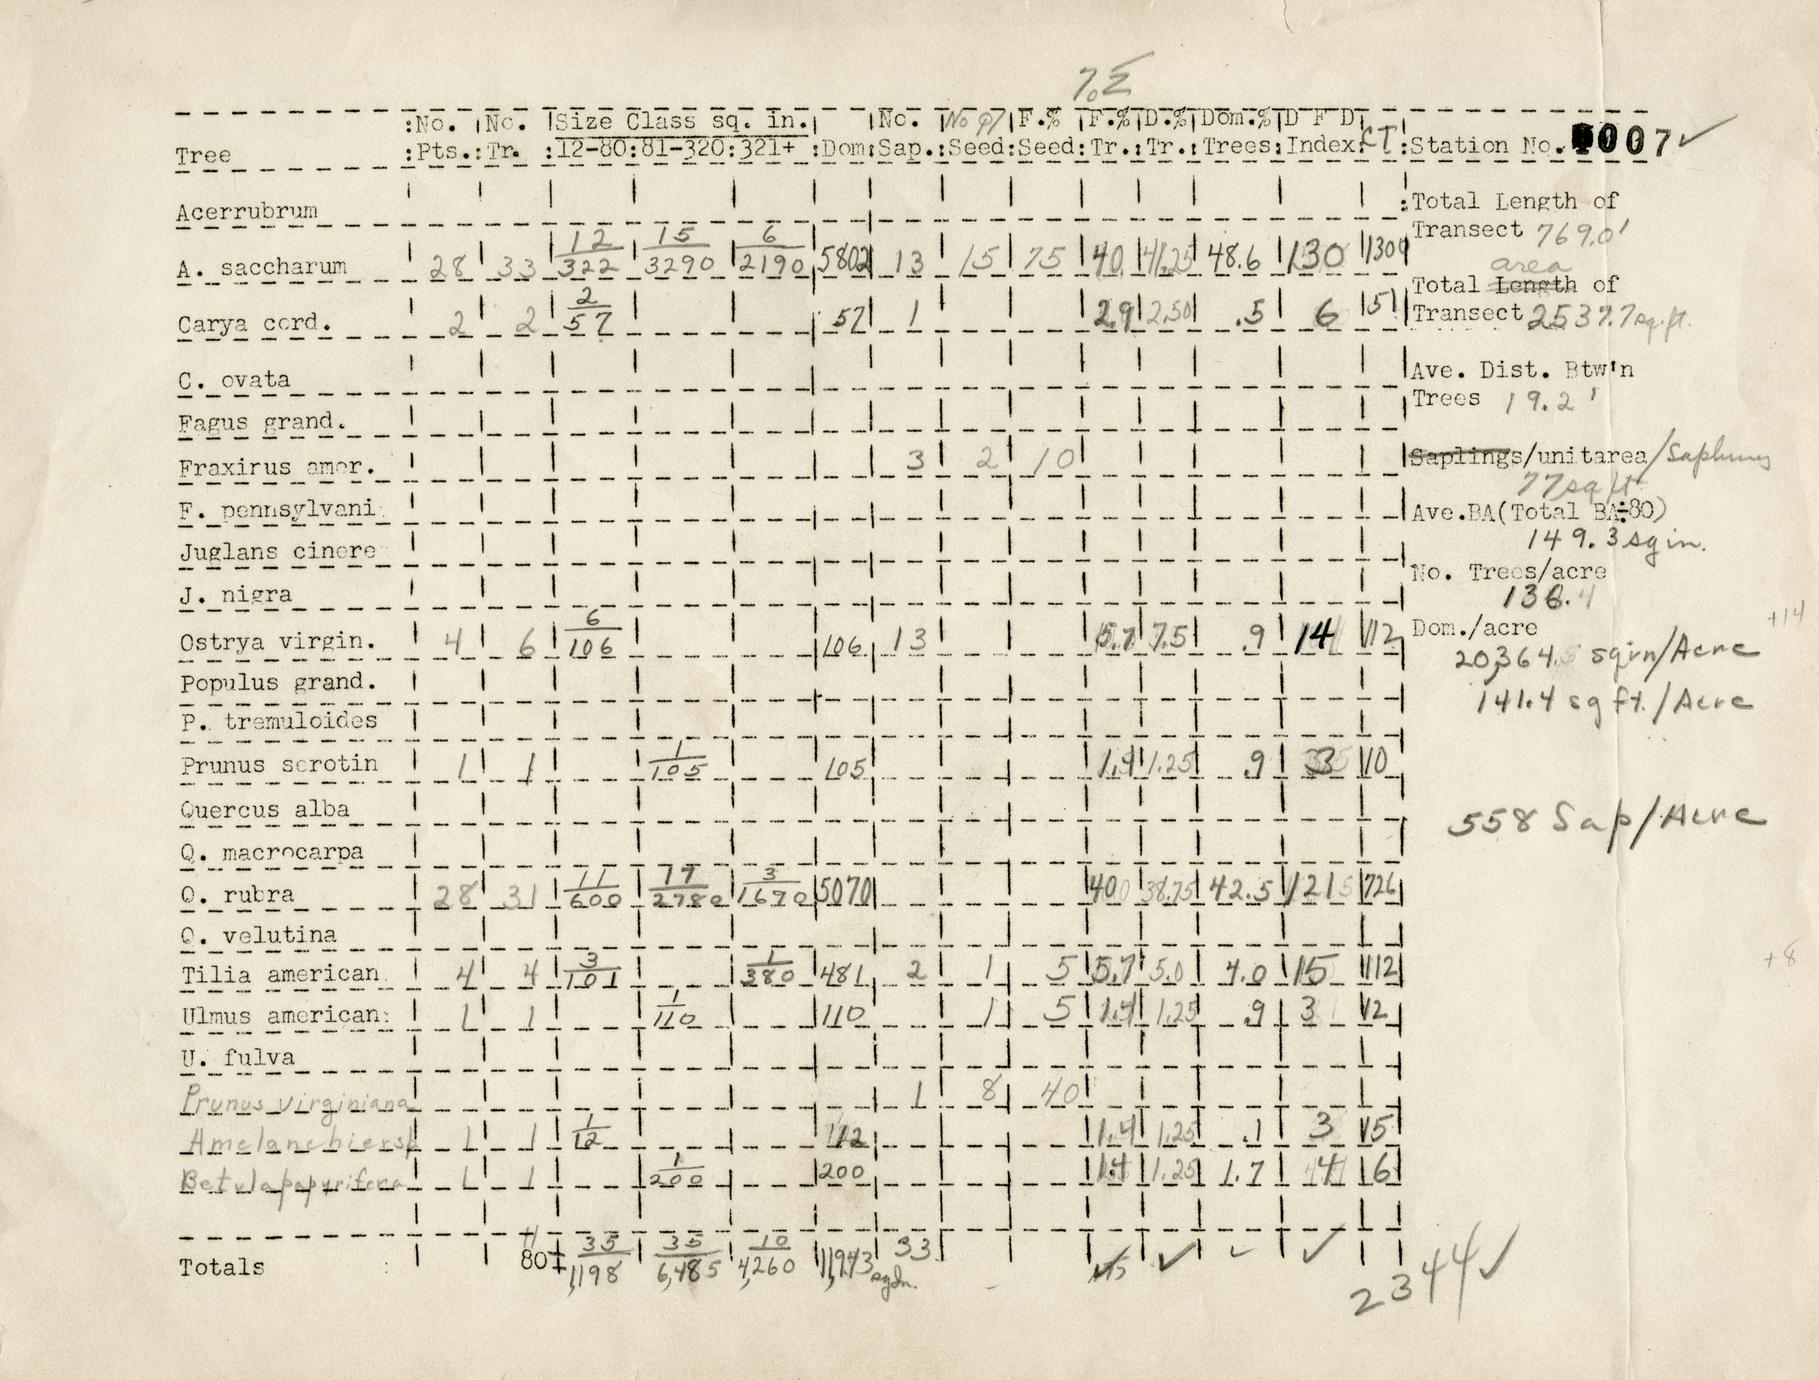 7.Σ
:No. :No. :Size Class sq. in.: :No. No of F.% F.% D.% Dom.% D F D
Tree :Pts.:Tr. :12-80:81-320:321+ :Dom:Sap.:Seed:Seed:Tr.:Tr.:Trees:Index: CT :Station No. 007 ✓
Acerrubrum :Total Length of
Transect 769.0'
A. saccharum 28 33 12/322 15/3290 6/2190 5802 13 15 75 40. 41.25 48.6 130
area
Total Length of
Transect 2537.7 sq.ft.
Carya cord. 2 2 2/57 57 1 2.9 2.50 .5 6 51
C. ovata Ave. Dist. Btw'n
Trees 19.2'
Fagus grand.
Fraxirus amer. 3 2 10 Saplings/unitarea/Saplings
77 sq ft.
F. pennsylvani Ave.BA(Total BA÷80)
149.3 sq in.
Juglans cinere
J. nigra No. Trees/acre
136.4
Ostrya virgin. 4 6 6/106 106 13 5.7 7.5 .9 14 112 Dom./acre +14
20,364.5 sqin/Acre
Populus grand.
141.4 sq ft./Acre
P. tremuloides
Prunus serotin 1 1 1/105 105 1.4 1.25 .9 10
Quercus alba
558 Sap/Acre
Q. macrocarpa
Q. rubra 28 31 11/600 17/2780 3/1690 5070 40 38.75 42.5 121 726
Q. velutina
Tilia american 4 4 3/101 1/380 481 2 1 5 5.7 5.0 4.0 15 112 +8
Ulmus american: 1 1 1/110 110 1 5 1.4 1.25 .9 3 12
U. fulva
Prunus virginiana 1 8 40
Amelanchier sp 1 1 1/12 12 1.4 1.25 .1 3 15
Betula papyrifera 1 1 1/200 200 1.4 1.25 1.7 4 6
Totals 80 35/1,198 35/6,485 10/4,260 11,943 sq in. 33 ✓ ✓ ✓ ✓
2344 ✓